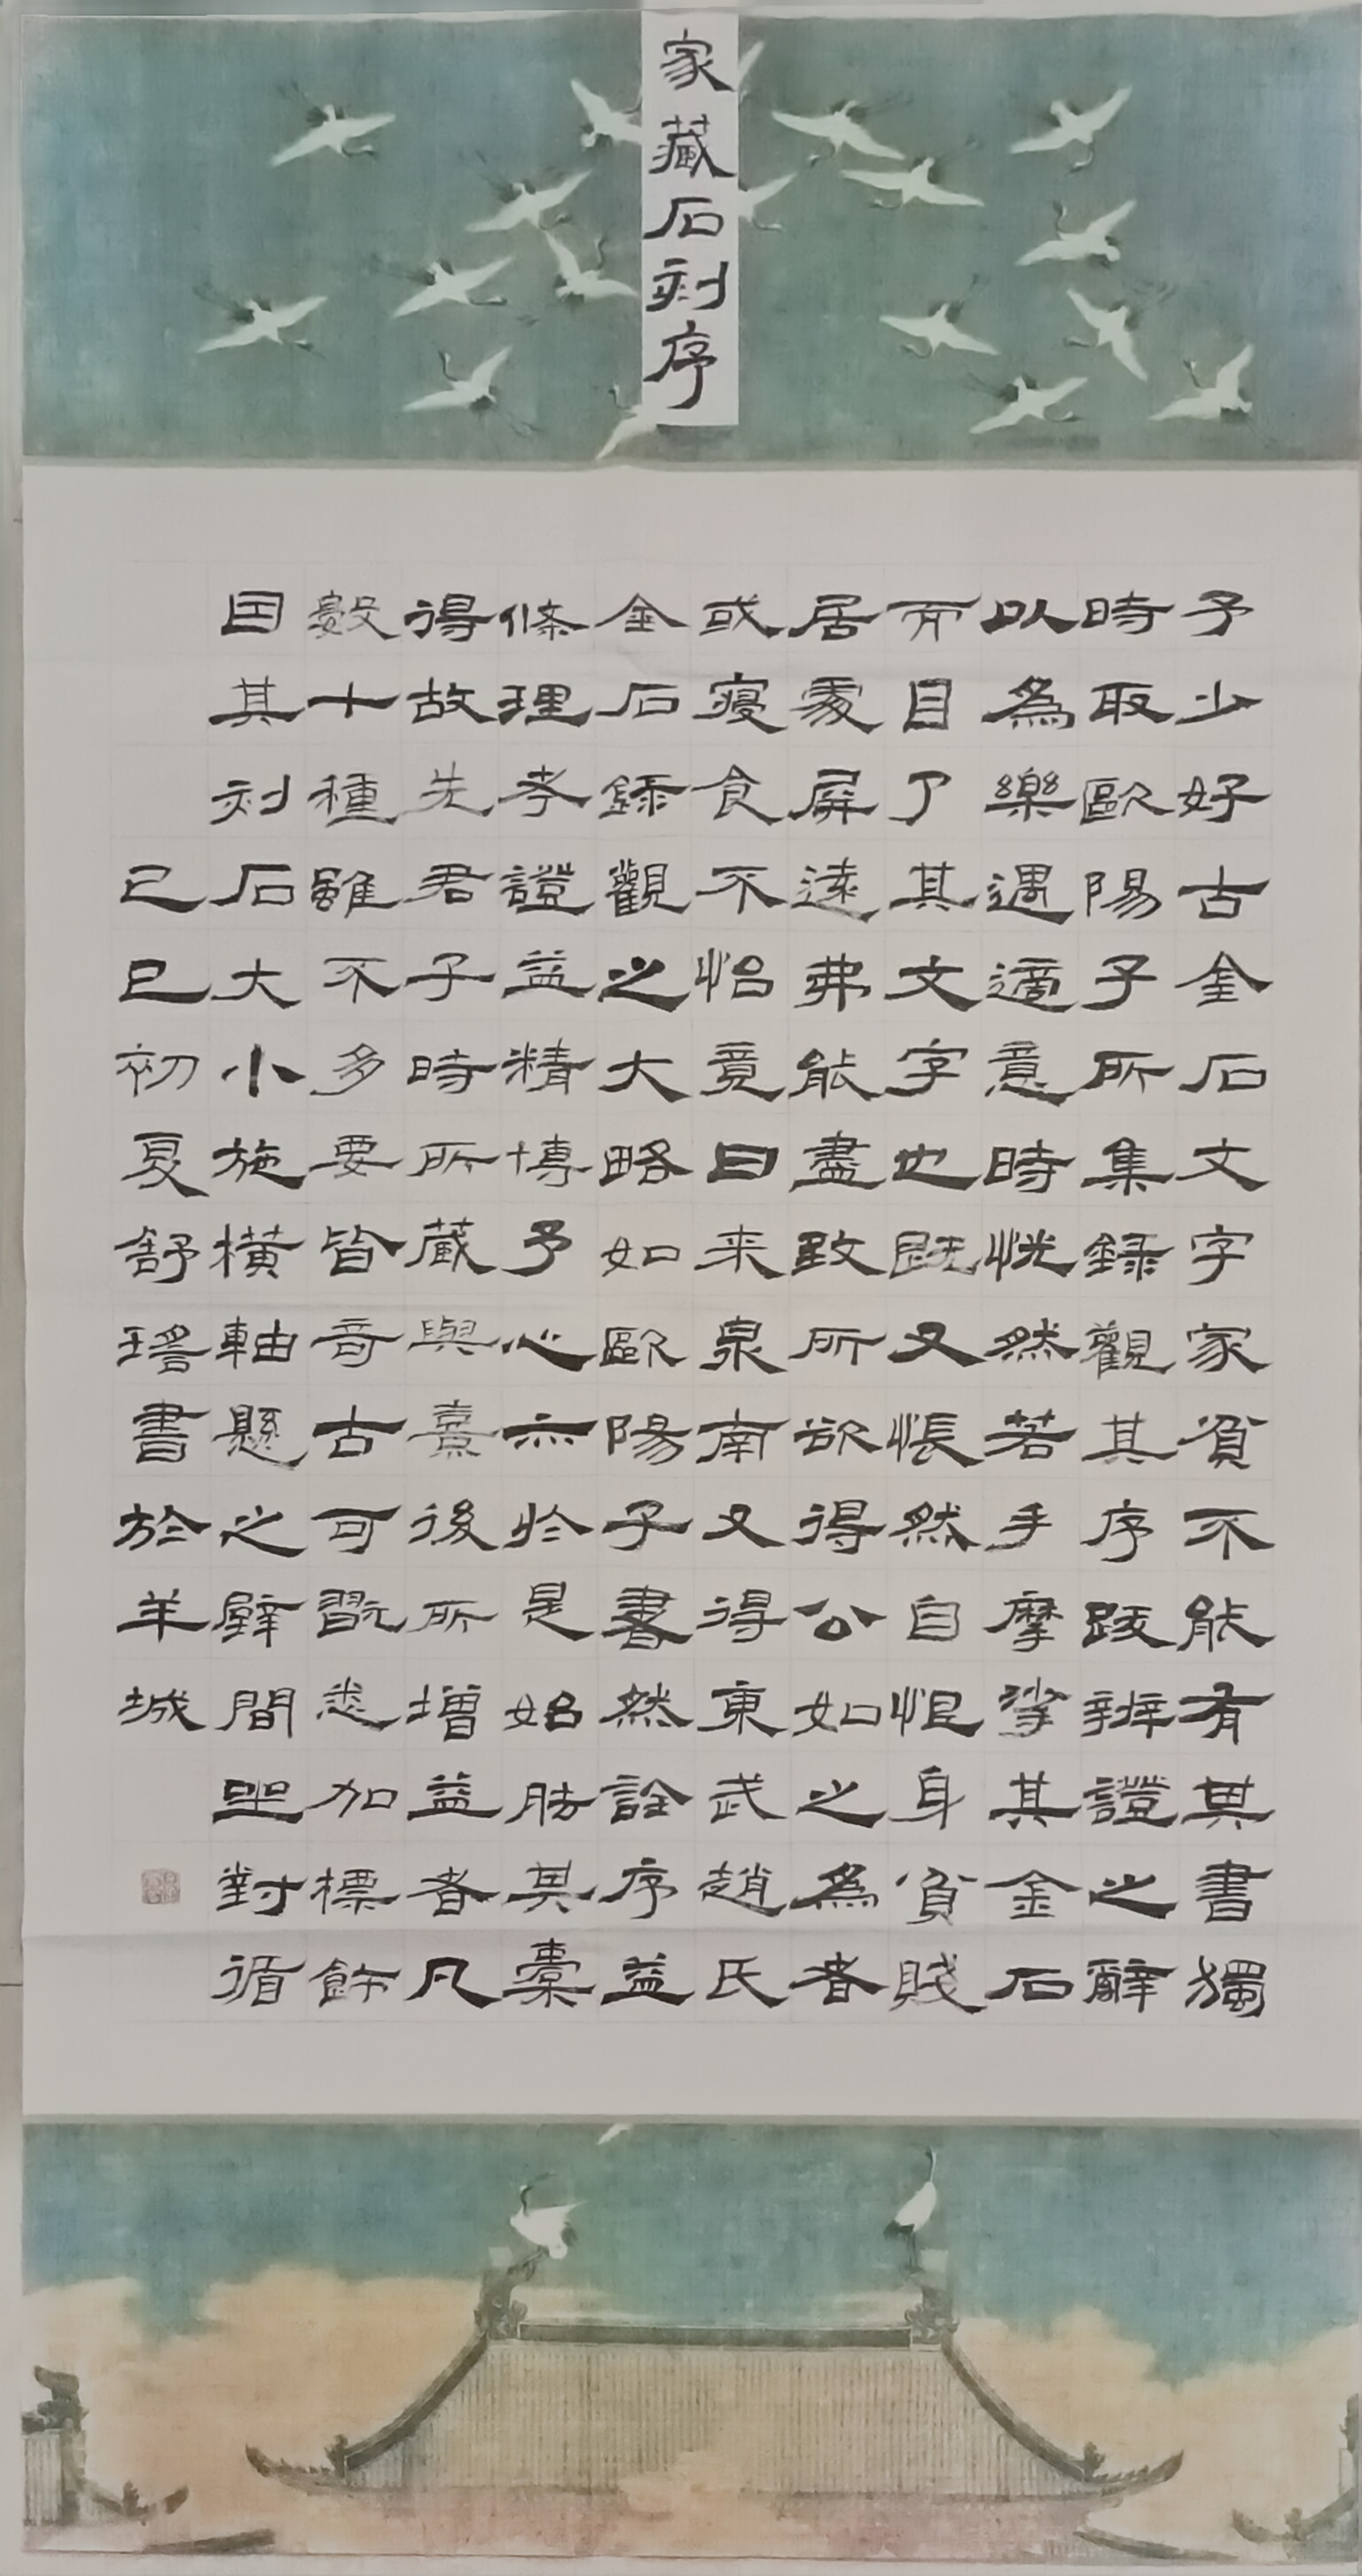 家藏石刻序
予少好古金石文字家貧不能有其書獨
時取歐陽子所集録觀其序跋辨證之辭
以為樂遇適意時恍然若手摩挲其金石
而目了其文字也既又悵然自恨身貧賤
居處屏遠弗能盡致所欲得公如之為者
或寢食不怡竟日来泉南又得東武趙氏
金石録觀之大略如歐陽子書然詮序益
條理考證益精博予心亦於是始胠其橐
得故先君子時所蔵與熹後所增益者凡
數十種雖不多要皆奇古可翫悉加標飾
因其刻石大小施橫軸懸之壁間坐對循
己巳初夏舒瑤書於羊城